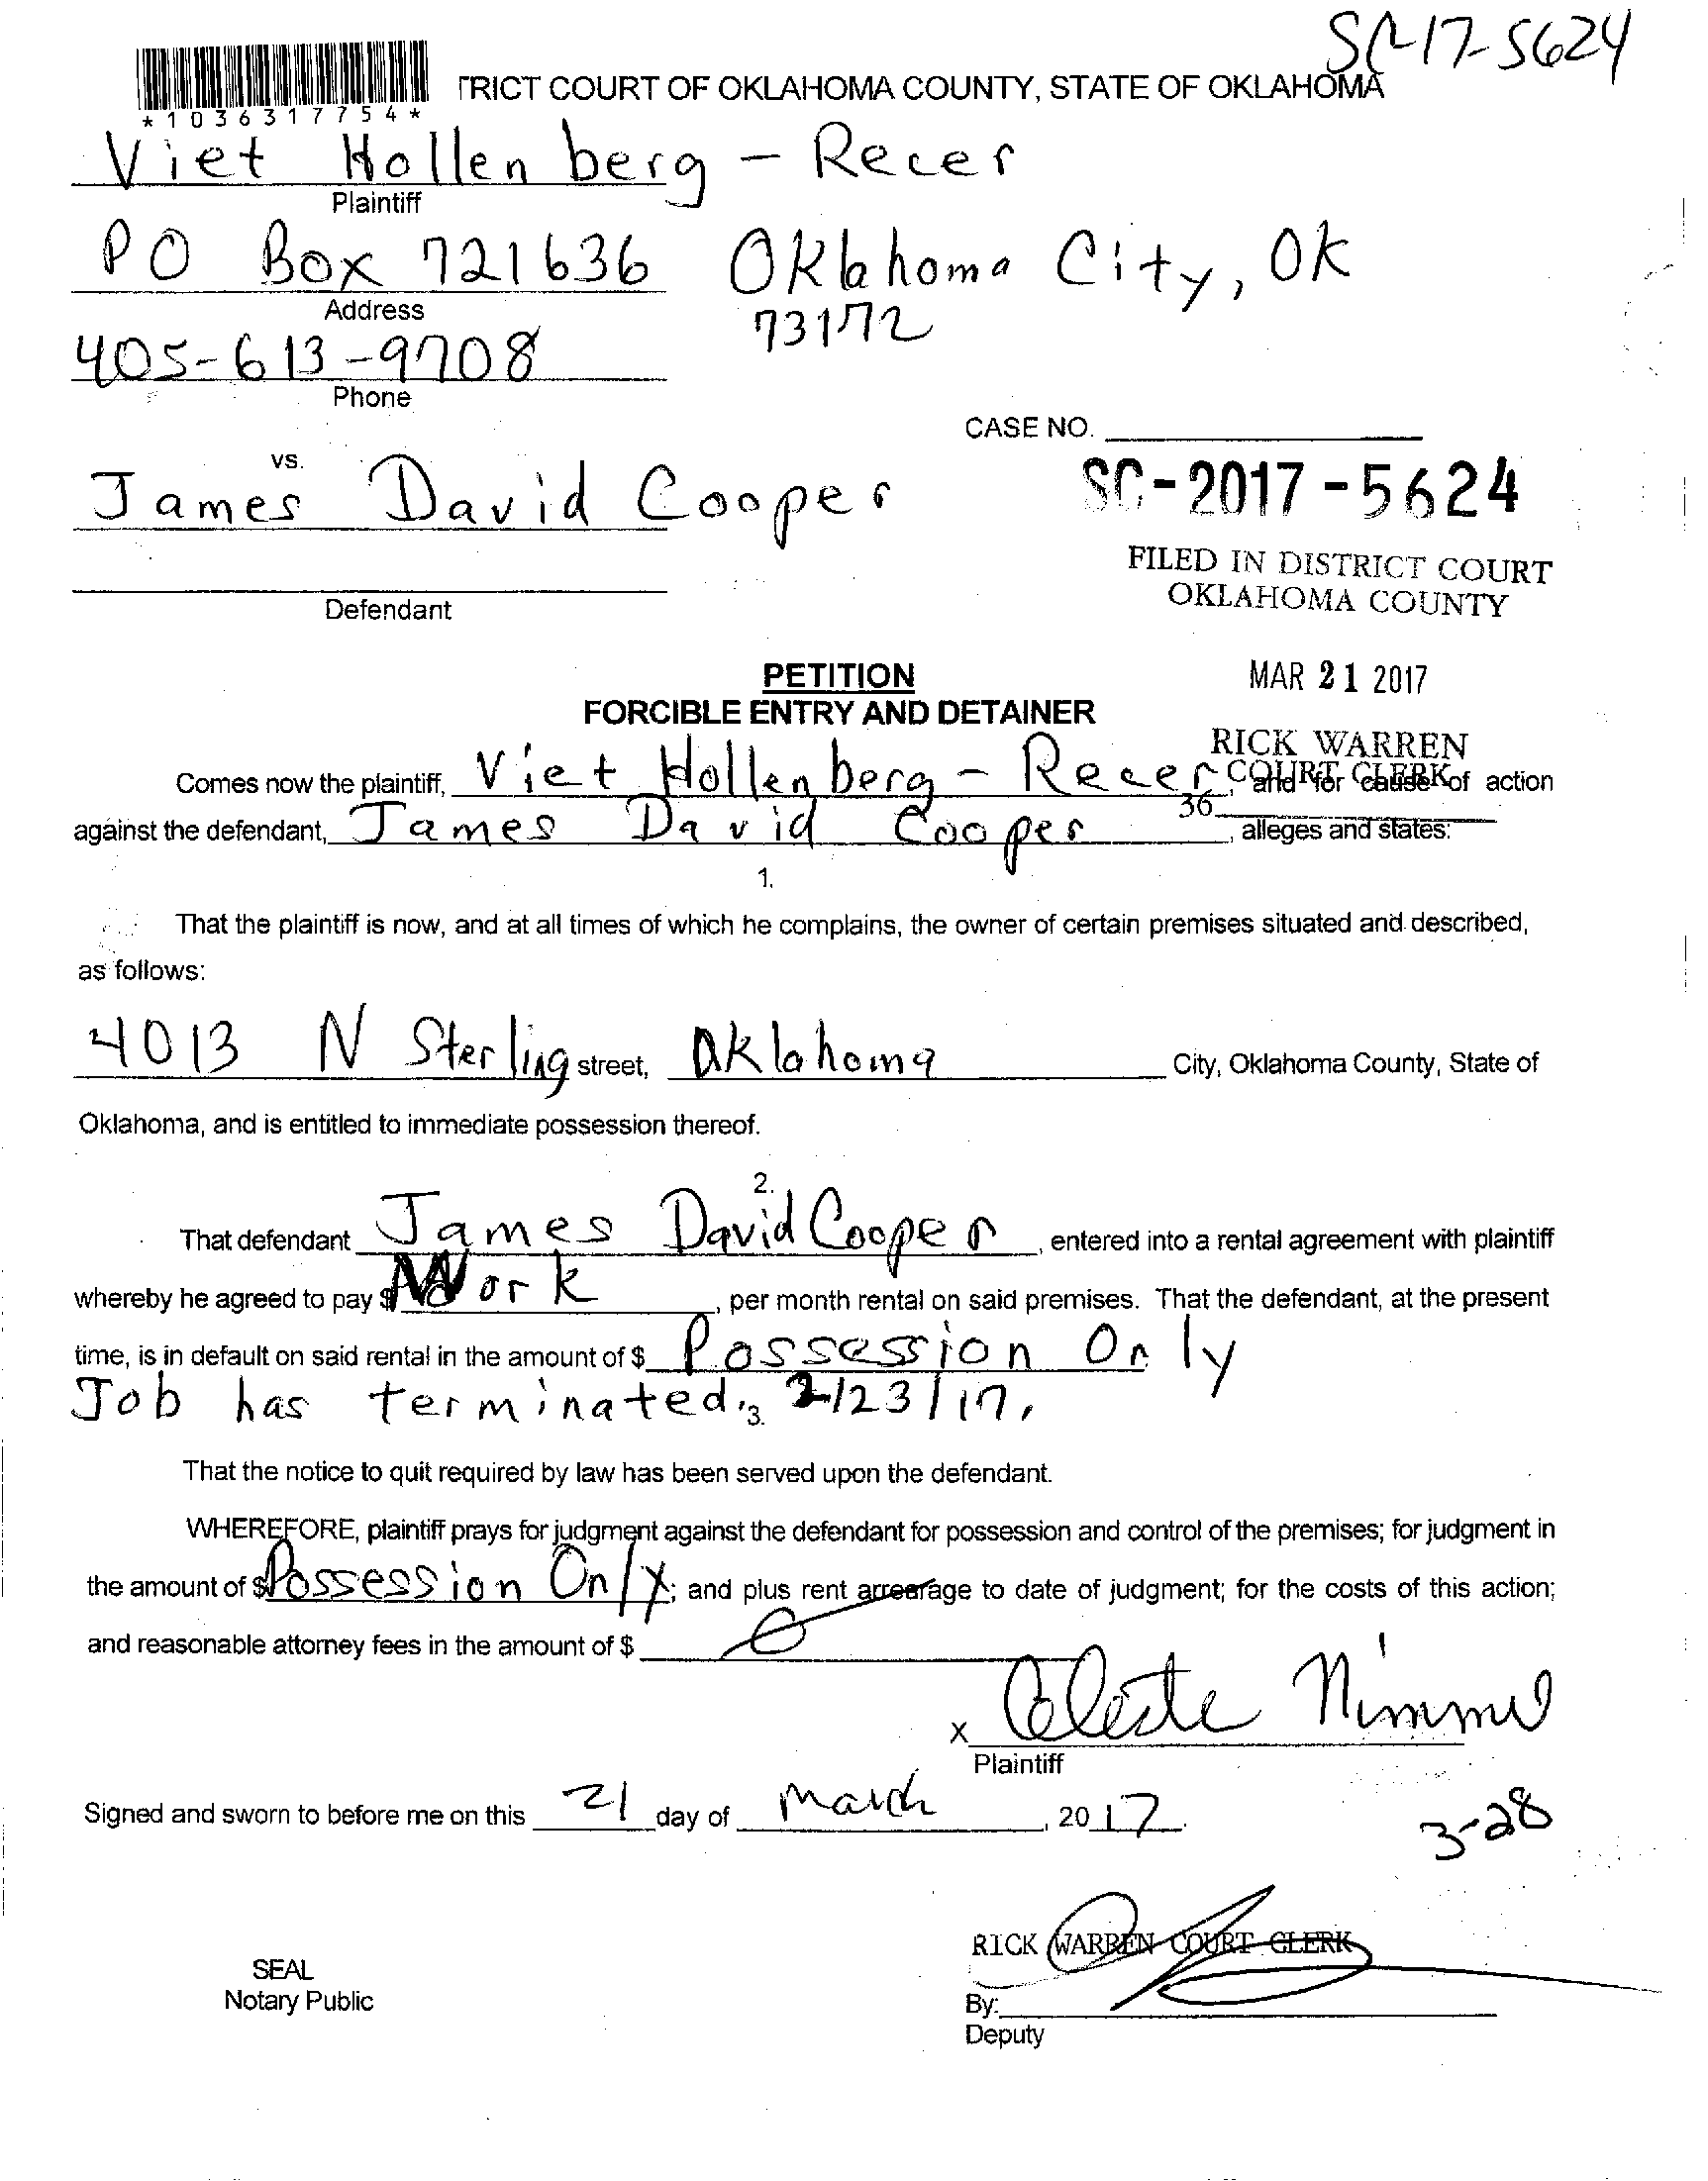 SC-17-5624
TRICT COURT OF OKLAHOMA COUNTY, STATE OF OKLAHOMA
*1036317754*
Viet Hollenberg - Recer
Plaintiff
PO Box 721636 Oklahoma City, OK
Address
73172
405-613-9708
Phone
CASE NO.
vs.
James David Cooper
SC-2017-5624
FILED IN DISTRICT COURT
OKLAHOMA COUNTY
Defendant
PETITION
MAR 21 2017
FORCIBLE ENTRY AND DETAINER
RICK WARREN
COURT CLERK
Comes now the plaintiff, Viet Hollenberg - Recer, and for cause of action
36
against the defendant, James David Cooper, alleges and states:
1.
That the plaintiff is now, and at all times of which he complains, the owner of certain premises situated and described,
as follows:
4013 N Sterling street, Oklahoma City, Oklahoma County, State of
Oklahoma, and is entitled to immediate possession thereof.
2.
That defendant James David Cooper, entered into a rental agreement with plaintiff
whereby he agreed to pay $ Work, per month rental on said premises. That the defendant, at the present
time, is in default on said rental in the amount of $ Possession Only
Job has terminated. 2/23/17.
3.
That the notice to quit required by law has been served upon the defendant.
WHEREFORE, plaintiff prays for judgment against the defendant for possession and control of the premises; for judgment in
the amount of $ Possession Only; and plus rent arrearage to date of judgment; for the costs of this action;
and reasonable attorney fees in the amount of $ 0
x Celeste Nimmo
Plaintiff
Signed and sworn to before me on this 21 day of March, 2017.
3-28
RICK WARREN COURT CLERK
SEAL
Notary Public
By:
Deputy